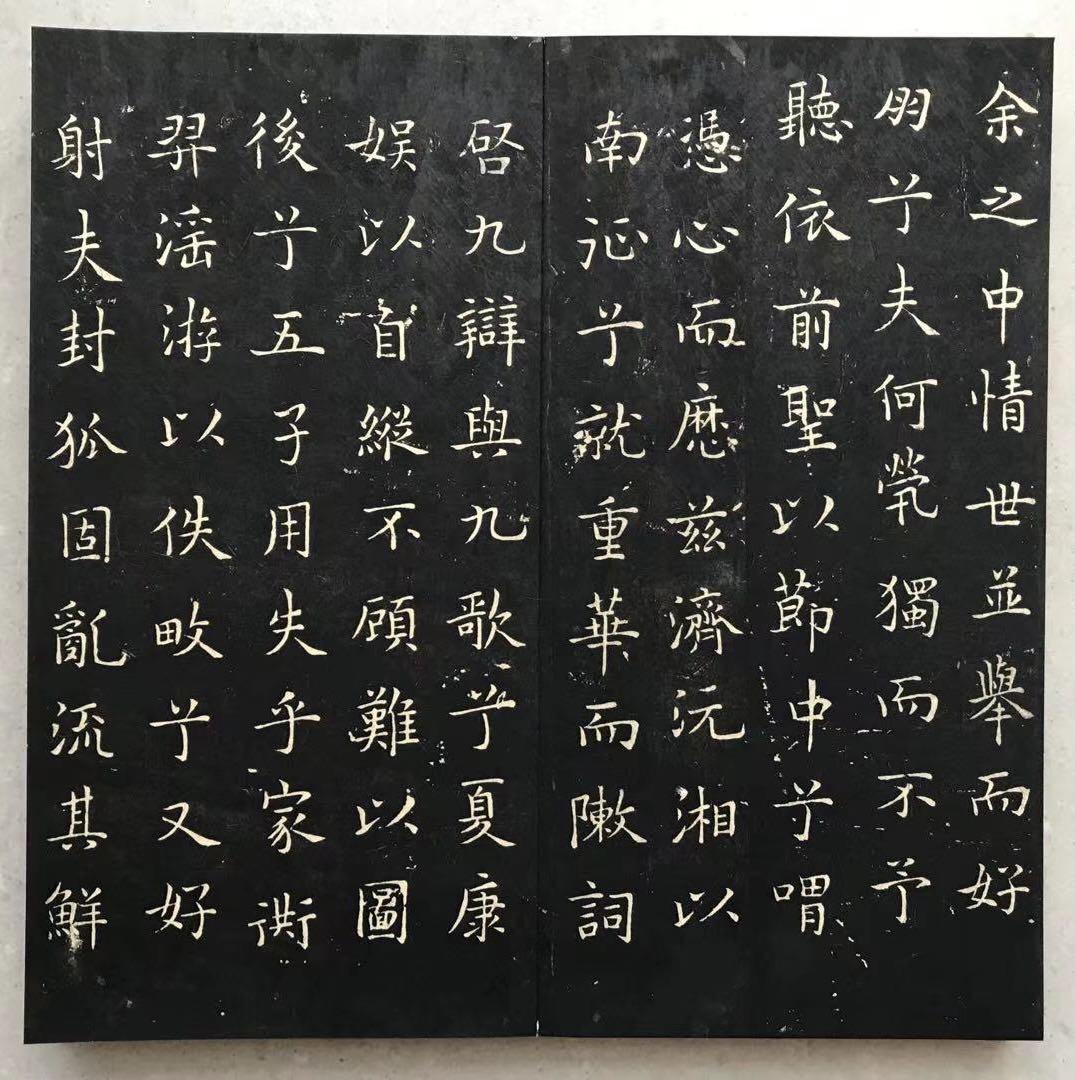 余之中情世並舉而好
朋兮夫何煢獨而不予
聽依前聖以節中兮喟
憑心而歷茲濟沅湘以
南征兮就重華而敶詞
启九辯與九歌兮夏康
娛以自縱不顧難以圖
後兮五子用失乎家衖
羿淫游以佚畋兮又好
射夫封狐固亂流其鮮